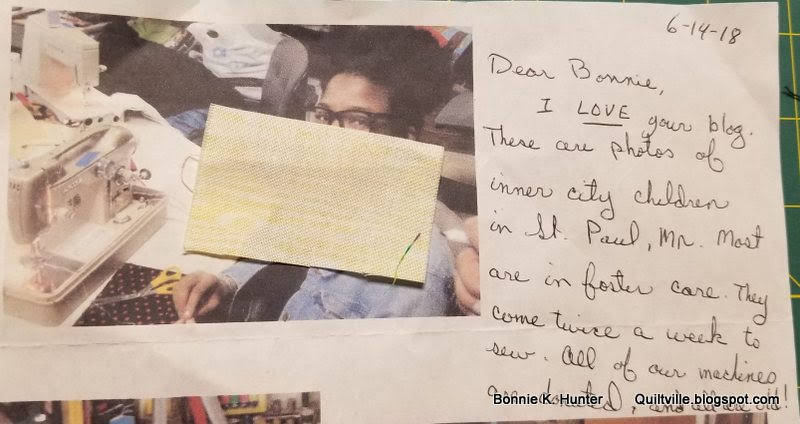 6-14-18
Dear Bonnie,
I LOVE your blog.
These are photos of
inner city children
in St. Paul, Mn. Most
are in foster care. They
come twice a week to
sew. All of our machines
are donated, and all are old!
Bonnie K. Hunter Quiltville.blogspot.com